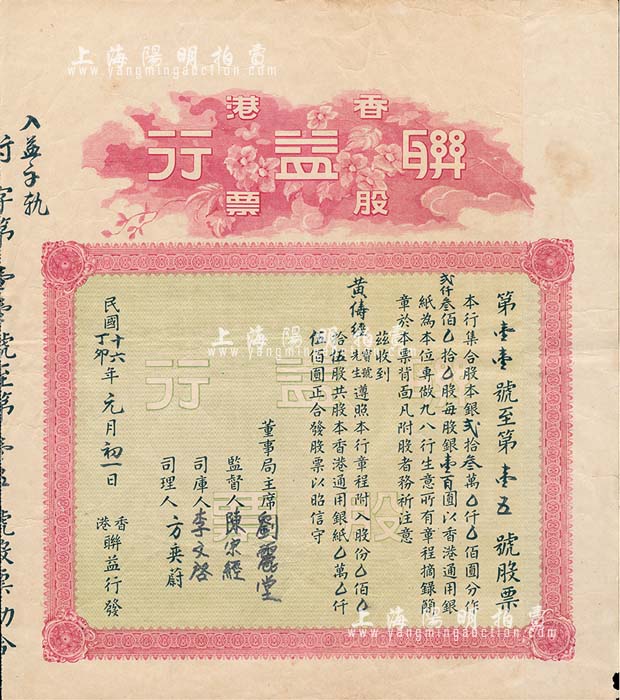 上海陽明拍賣
www.yangmingauction.com
香港
聯益行
股票
第壹壹號至第壹五號股票
本行集合股本銀貳拾叁萬乙仟乙佰圓分作
貳仟叁佰乙拾乙股每股銀壹百圓以香港通用銀
紙為本位專做九八行生意所有章程摘錄簡
章於本票背面凡附股者務所注意
茲收到
黃傳經寶號先生遵照本行章程附入股份乙佰乙
拾伍股共股本香港通用銀紙乙萬乙仟
伍佰圓正合發股票以昭信守
董事局主席劉麗堂
監督人陳宗經
司庫人李文啓
司理人方奕蔚
民國十六年元月初一日
丁卯
香港聯益行發
入益子執
行字第壹壹號至第壹五號股票
聯益行
股票
上海陽明拍賣
www.yangmingauction.com
上海陽明拍賣
www.yangmingauction.com